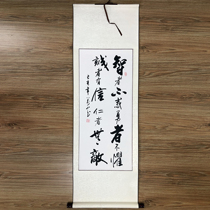 智者不惑勇者不懼
誠者有信仁者無敵